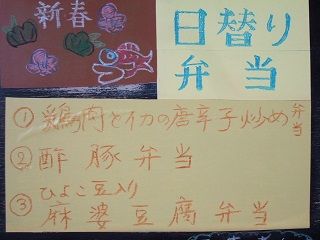 新春
日替り
弁当
①鶏肉とイカの唐辛子炒め弁当
②酢豚弁当
③ひよこ豆入り
麻婆豆腐弁当